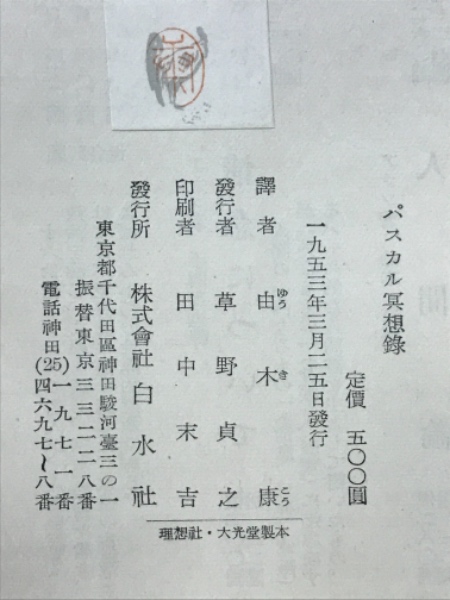 パスカル冥想錄
定價 五〇〇圓
一九五三年三月二五日發行
譯者 由木康
ゆうきこう
發行者 草野貞之
印刷者 田中末吉
發行所 株式會社白水社
東京都千代田區神田駿河臺三の一
振替東京三三二二八番
電話神田(25)一九七一番
四六九七〜八番
理想社・大光堂製本